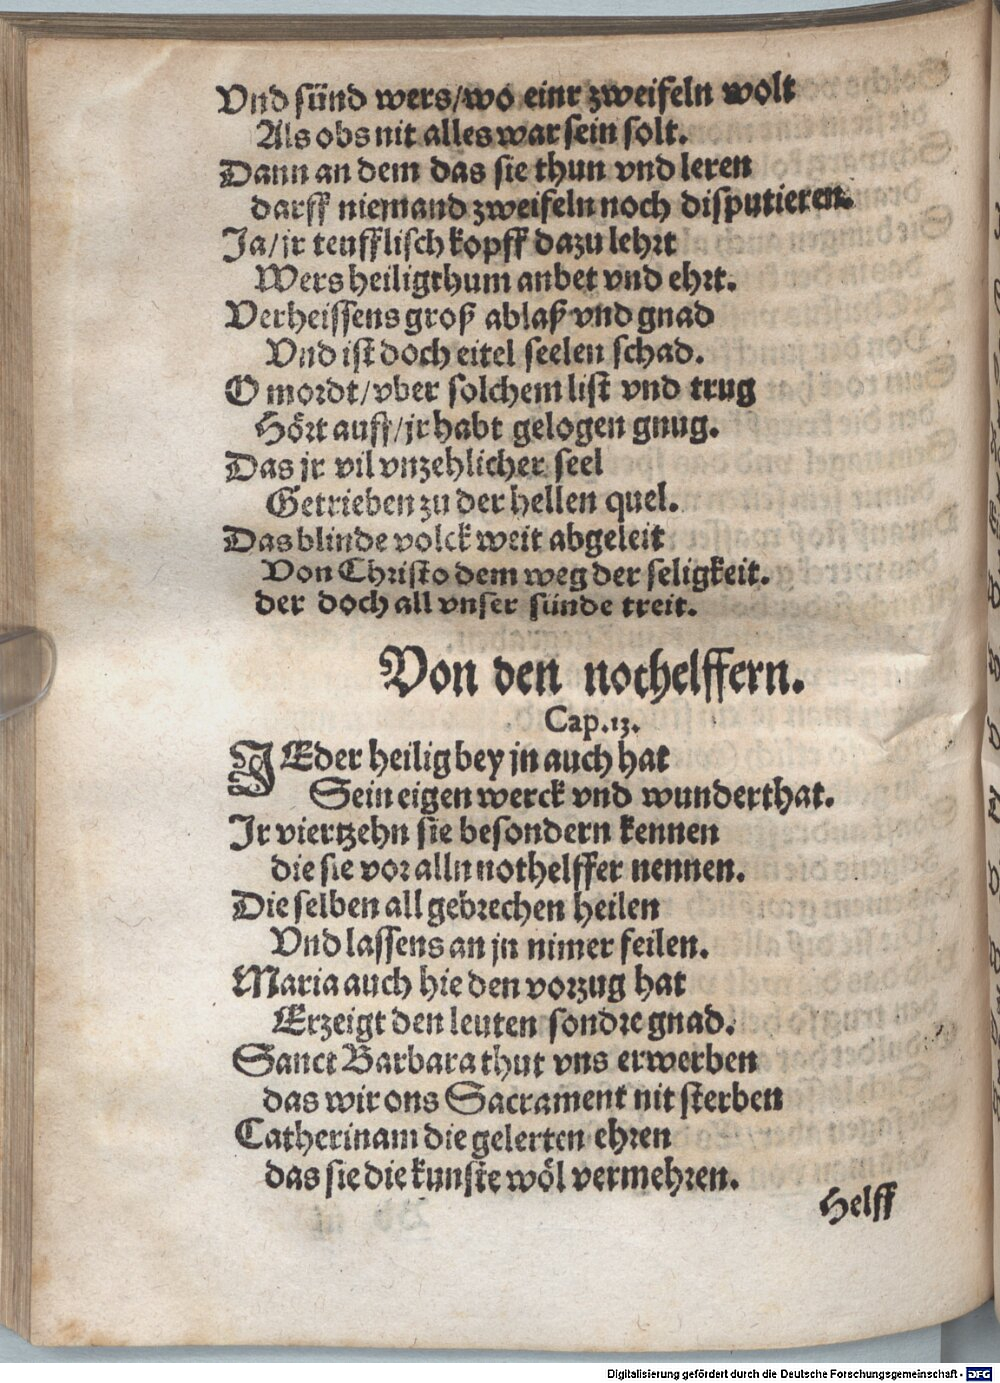 Vnd sünd wers/wo einr zweifeln wolt
Als obs nit alles war sein solt.
Dann an dem das sie thun vnd leren
darff niemand zweifeln noch disputieren.
Ja/jr teufflisch kopff dazu lehrt
Wers heiligthum anbet vnd ehrt.
Verheissens groß ablaß vnd gnad
Vnd ist doch eitel seelen schad.
O mordt/vber solchem list vnd trug
Hört auff/jr habt gelogen gnug.
Das jr vil vnzehlicher seel
Getrieben zu der hellen quel.
Das blinde volck weit abgeleit
Von Christo dem weg der seligkeit.
der doch all vnser sünde treit.
Von den nothelffern.
Cap.13.
JEder heilig bey jn auch hat
Sein eigen werck vnd wunderthat.
Jr viertzehn sie besondern kennen
die sie vor alln nothelffer nennen.
Die selben all gebrechen heilen
Vnd lassens an jn nimer feilen.
Maria auch hie den vorzug hat
Erzeigt den leuten sondre gnad.
Sanct Barbara thut vns erwerben
das wir ons Sacrament nit sterben
Catherinam die gelerten ehren
das sie die kunste wöl vermehren.
Helff
Digitalisierung gefördert durch die Deutsche Forschungsgemeinschaft - DFG